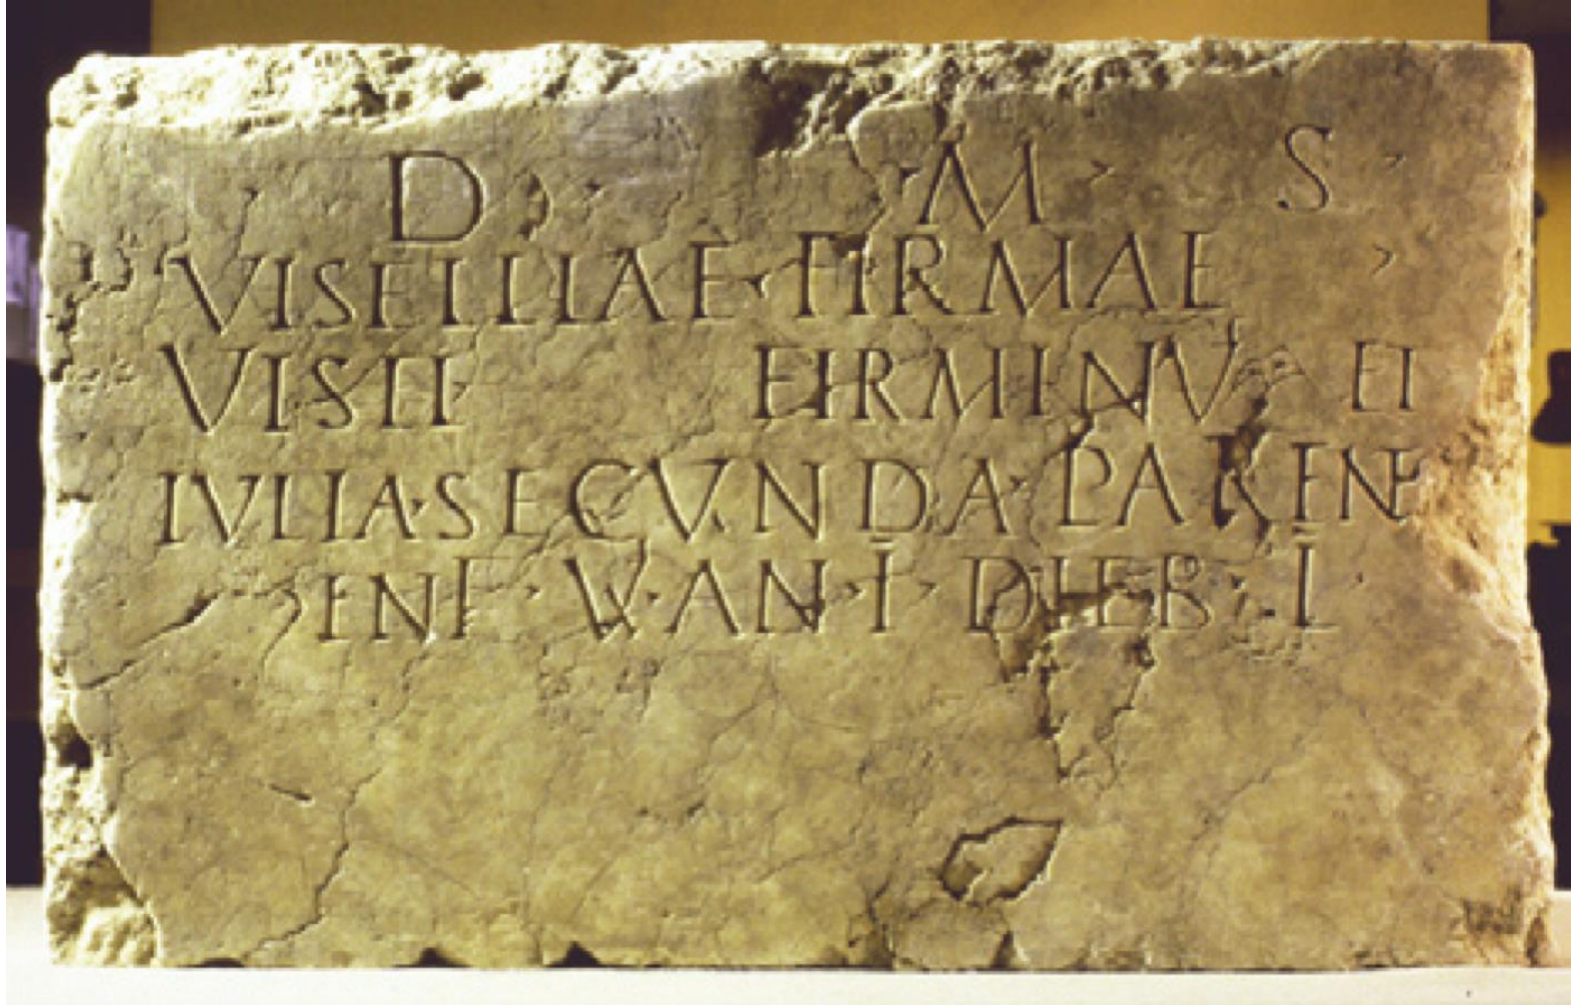 · D · M · S ·
VISELLIAE · FIRMAE
VISEL · FIRMINVS ET
IVLIA · SECVNDA · PARENT
INF · VIX · AN · I · DIEB · L ·